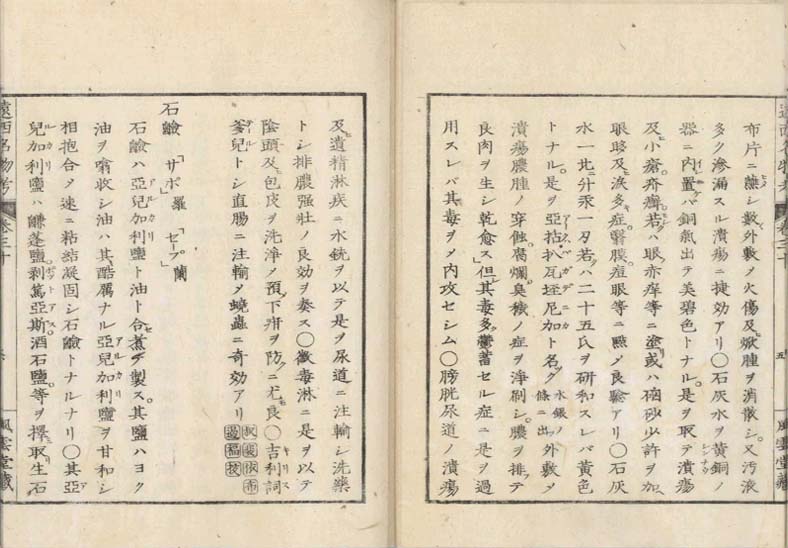 布片ニ蘸シ數〻外敷メ火傷及焮腫ヲ消散シ又汚液
多ク滲漏スル潰瘍ニ捷効アリ〇石灰水ヲ黄銅ノ
器ニ内置ケバ銅氣出テ美碧色トナル是ヲ取テ潰瘍
及小瘡疥癬若クハ眼赤痒等ニ塗リ或ハ硇砂少許ヲ加ヘ
眼眵及涙多症瞖膜痘眼等ニ點メ良驗アリ〇石灰
水一比ニ升汞一刃若クハ二十五氏ヲ研和スレバ黄色
トナル是ヲ亞括扒瓦垤尼加ト名ク 水銀ノ條ニ出ツ 外敷メ
潰瘍膿腫ノ穿蝕腐爛臭穢ノ症ヲ淨刷シ膿ヲ排テ
良肉ヲ生シ乾愈ス但其毒多ク鬱蓄セル症ニ是ヲ過
用スレバ其毒ヲメ内攻セシム〇膀胱尿道ノ潰瘍
遠西名物考
卷三十
五
風雲堂藏
及遺精淋疾ニ水銃ヲ以テ是ヲ尿道ニ注輸シ洗藥
トシ排膿強壮ノ良効ヲ奏ス〇黴毒淋ニ是ヲ以テ
陰頭及包皮ヲ洗淨メ預メ下疳ヲ防クニ尤良シ〇吉利詞
爹兒トシ直腸ニ注輸メ蟯蟲ニ奇効アリ
石鹼「サポ」羅「セープ」蘭
石鹼ハ亞兒加利鹽ト油ト合セ煮テ製ス其鹽ハヨク
油ヲ噏收シ油ハ其酷厲ナル亞兒加利鹽ヲ甘和シ
相抱合メ速ニ粘結凝固シ石鹼トナルナリ〇其亞
兒加利鹽ハ鹻蓬鹽剥篤亞斯酒石鹽等ヲ擇ヒ取リ生石
遠西名物考
卷三十
風雲堂藏